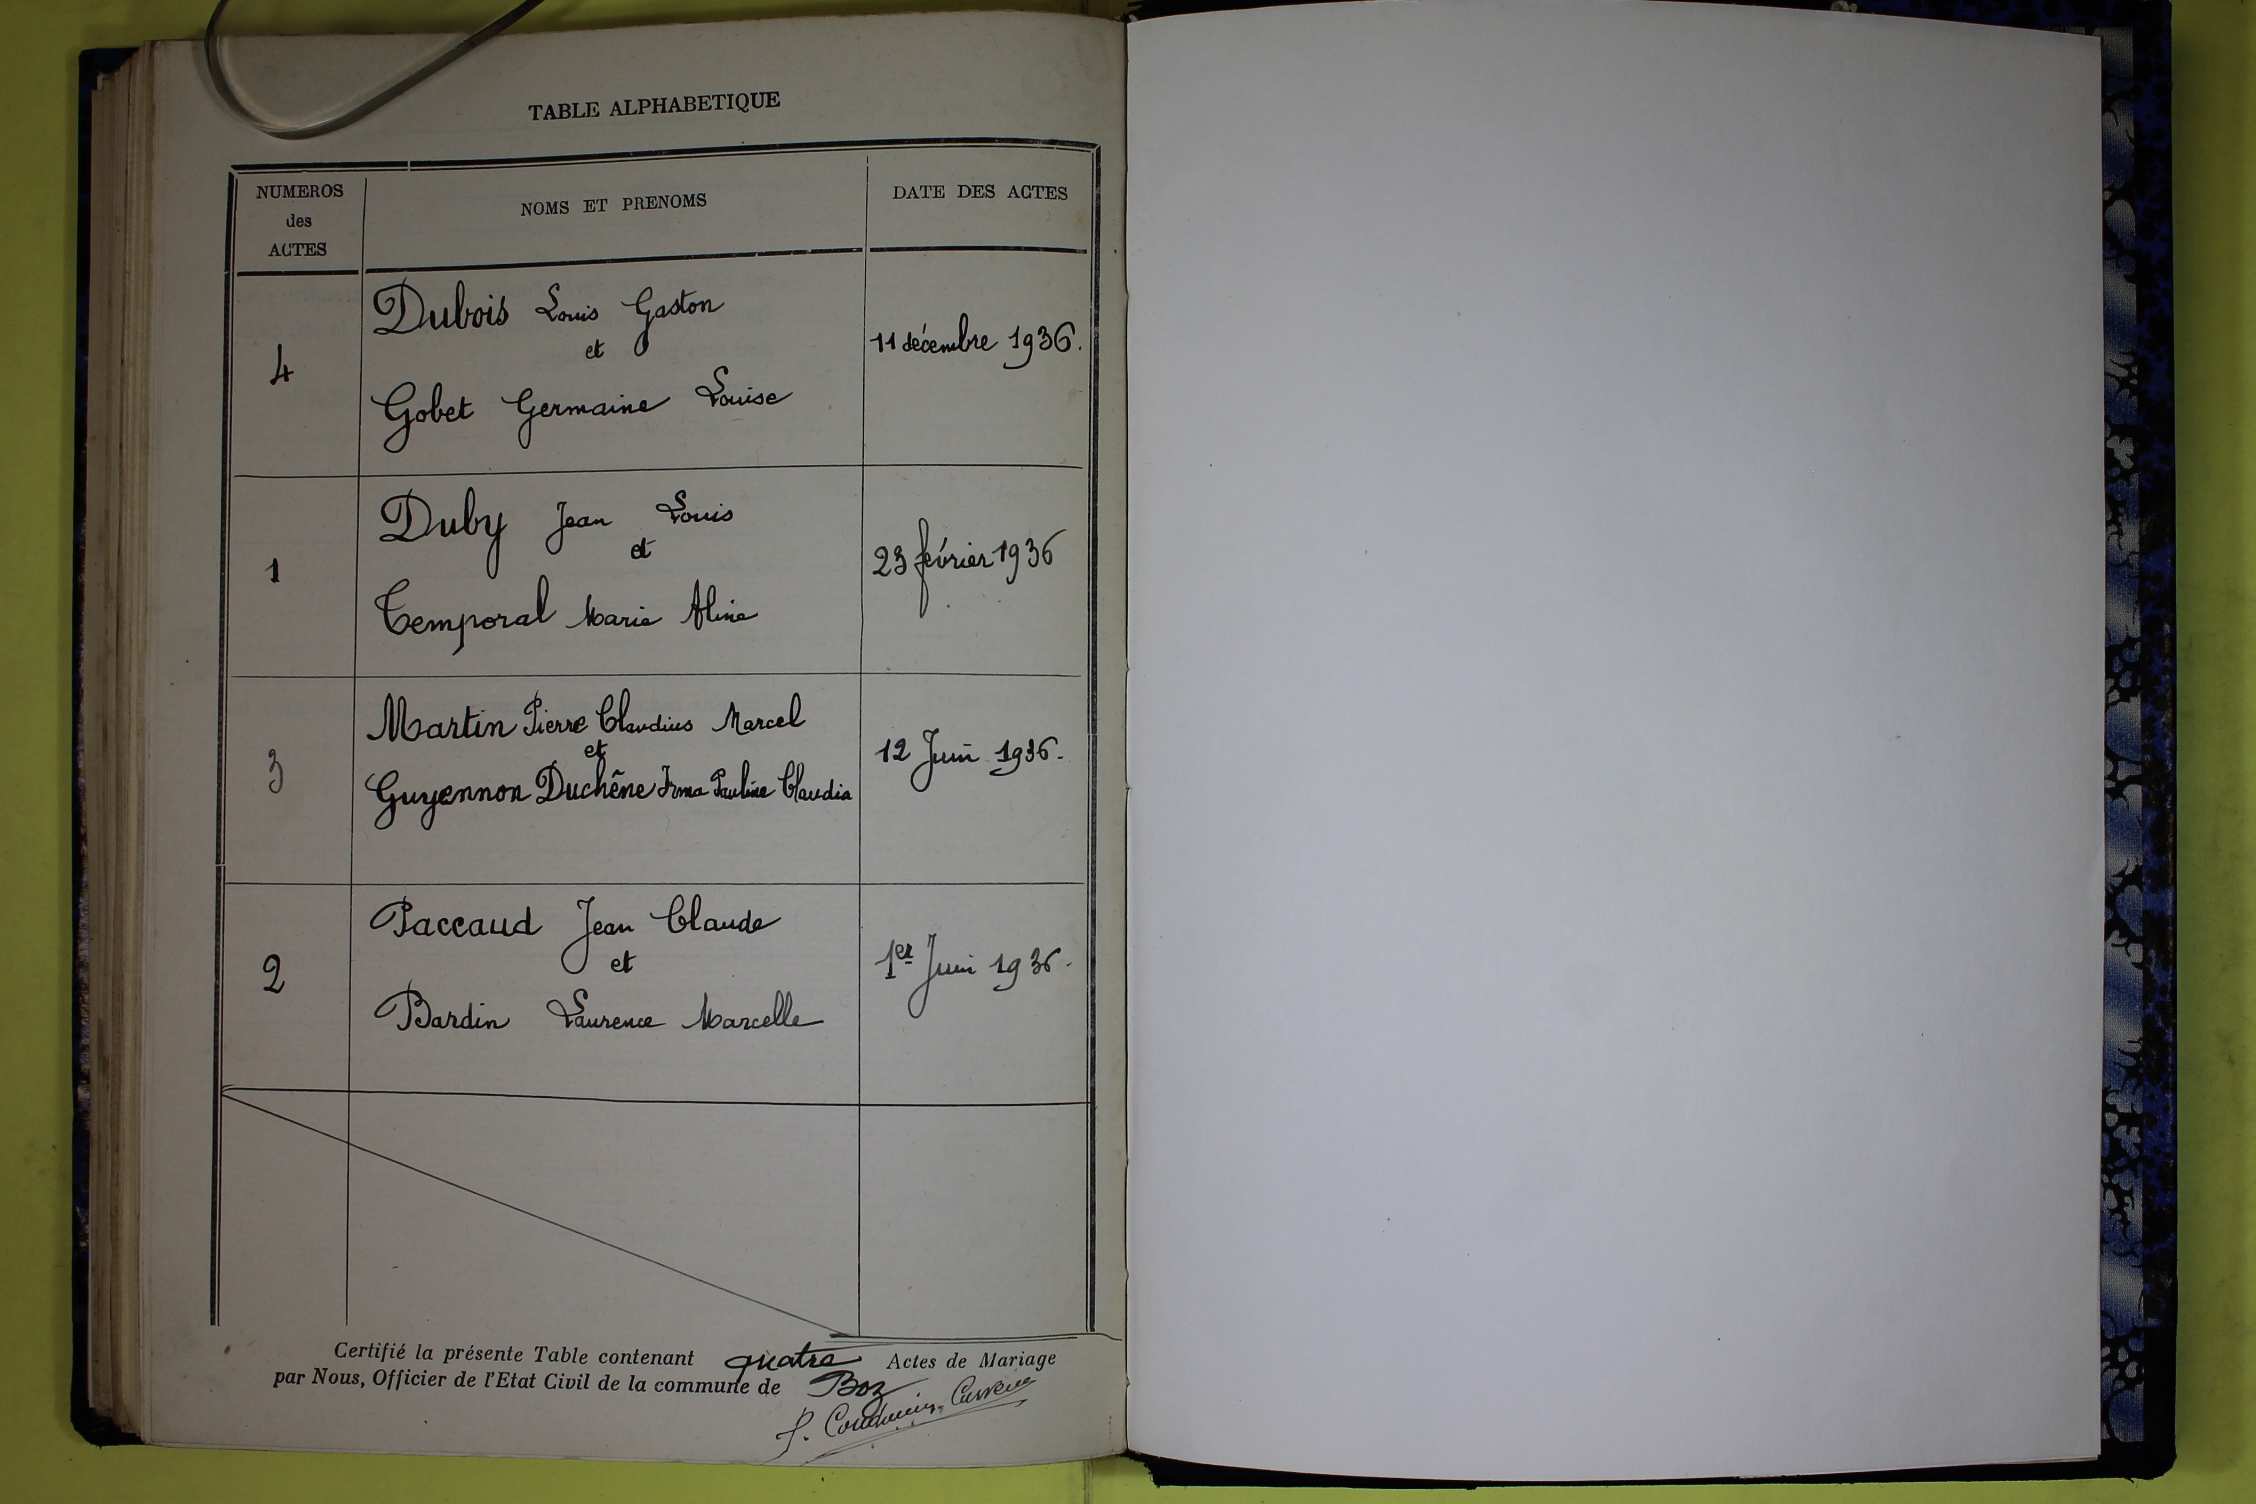 TABLE ALPHABETIQUE
NUMEROS
des
ACTES
NOMS ET PRENOMS
DATE DES ACTES
4
Dubois Louis Gaston
et
Gobet Germaine Louise
11 décembre 1936.
1
Duby Jean Louis
et
Temporal Marie Aline
23 février 1936
3
Martin Pierre Claudius Marcel
et
Guyennon Duchêne Irma Pauline Claudia
12 Juin 1936.
2
Paccaud Jean Claude
et
Bardin Laurence Marcelle
1er Juin 1936.
Certifié la présente Table contenant quatre Actes de Mariage
par Nous, Officier de l'Etat Civil de la commune de Boz